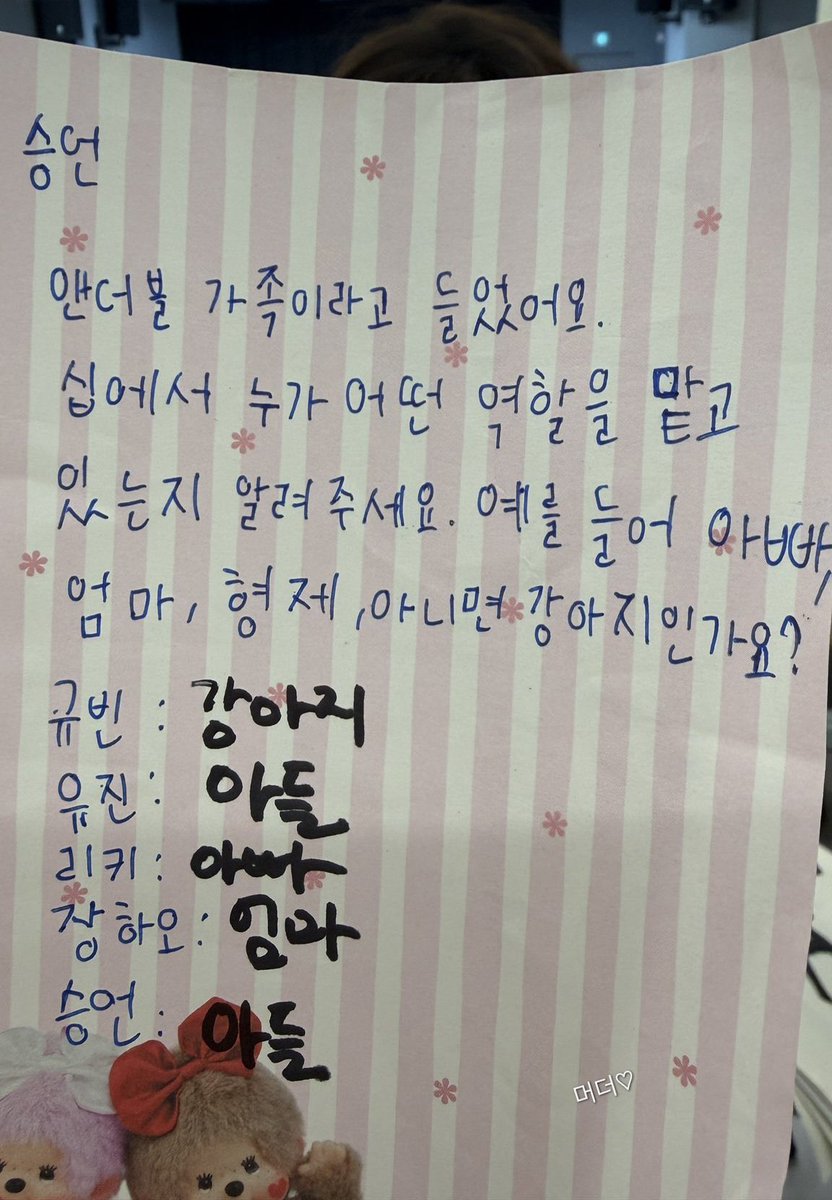 승언
앤더블 가족이라고 들었어요.
십에서 누가 어떤 역할을 맡고
있는지 알려주세요. 예를 들어 아빠,
엄마, 형제, 아니면 강아지인가요?
규빈 : 강아지
유진 : 아들
리키 : 아빠
장하오 : 엄마
승언 : 아들
머더♡